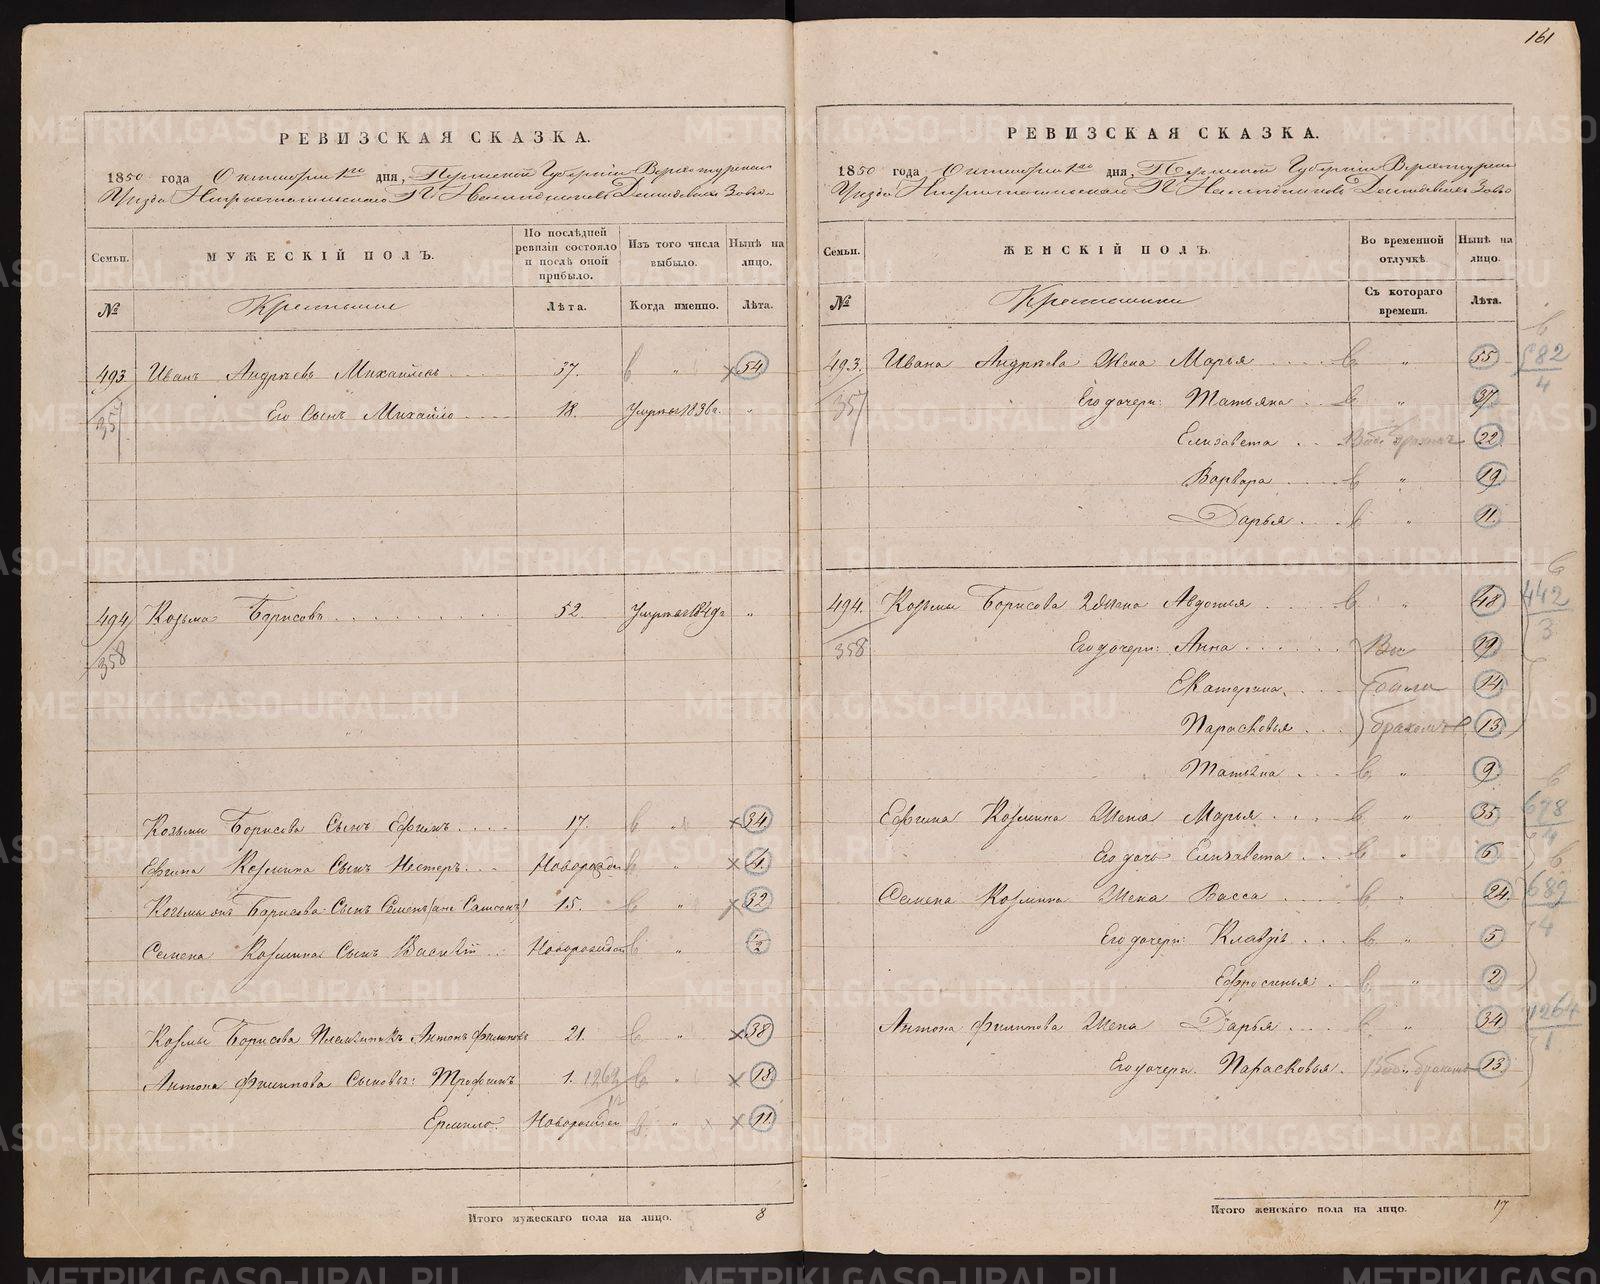 161
РЕВИЗСКАЯ СКАЗКА.
1850 года Октября 1го дня, Пермской Губернии Верхотурскаго
Уѣзда Нижнетагильскаго Н Наслѣдниковъ Демидовыхъ Заво
Семьи.
МУЖЕСКІЙ ПОЛЪ.
По послѣдней ревизіи состояло и послѣ оной прибыло.
Изъ того числа выбыло.
Нынѣ на лицо.
№
Крестьяне
Лѣта.
Когда именно.
Лѣта.
493 Иванъ Андреевъ Михайловъ 37. " 54
357 Его Сынъ Михайло 18. Умеръ 1836г. "
494 Козьма Борисовъ 52. Умеръ 1849г "
358
Козьмы Борисова Сынъ Ефимъ 17. " 34
Ефима Козмина Сынъ Нестеръ Новорожден " 4
Козьмы онъ Борисова Сынъ Семенъ (онъ Самсонъ) 15. " 32
Семена Козмина Сынъ Василій Новорожден " 1/2
Козмы Борисова Племянникъ Антонъ Филиповъ 21. " 38
Антона Филипова Сыновья: Трофимъ 1. 1263 " 18
12
Ермило. Новорожден " 11
Итого мужескаго пола на лицо. 8
РЕВИЗСКАЯ СКАЗКА.
1850 года Октября 1го дня, Пермской Губернии Верхотурскаго
Уѣзда Нижнетагильскаго Н Наслѣдниковъ Демидовыхъ Заво
Семьи.
ЖЕНСКІЙ ПОЛЪ
Во временной отлучкѣ
Нынѣ на лицо.
№
Крестьянки
Съ котораго времени.
Лѣта.
493. Ивана Андреева Жена Марья " 55 682/4
357 Его дочери: Татьяна " 37
Елизавета 22
Варвара " 19
Дарья " 11.
494. Козьмы Борисова 2 Жена Авдотья " 48 442/3
358 Его дочери: Анна Вы 19
Екатерина были 14
Парасковья бракомъ 13
Татьяна " 9
Ефима Козмина Жена Марья " 35 678/4
Его дочь Елизавета " 6
Семена Козмина Жена Васса " 24 689/4
Его дочери: Клавдія " 5
Ефросинья " 2
Антона Филипова Жена Дарья " 34 1264/1
Его дочери Парасковья. 13
Итого женскаго пола на лицо. 17
METRIKI.GASO-URAL.RU